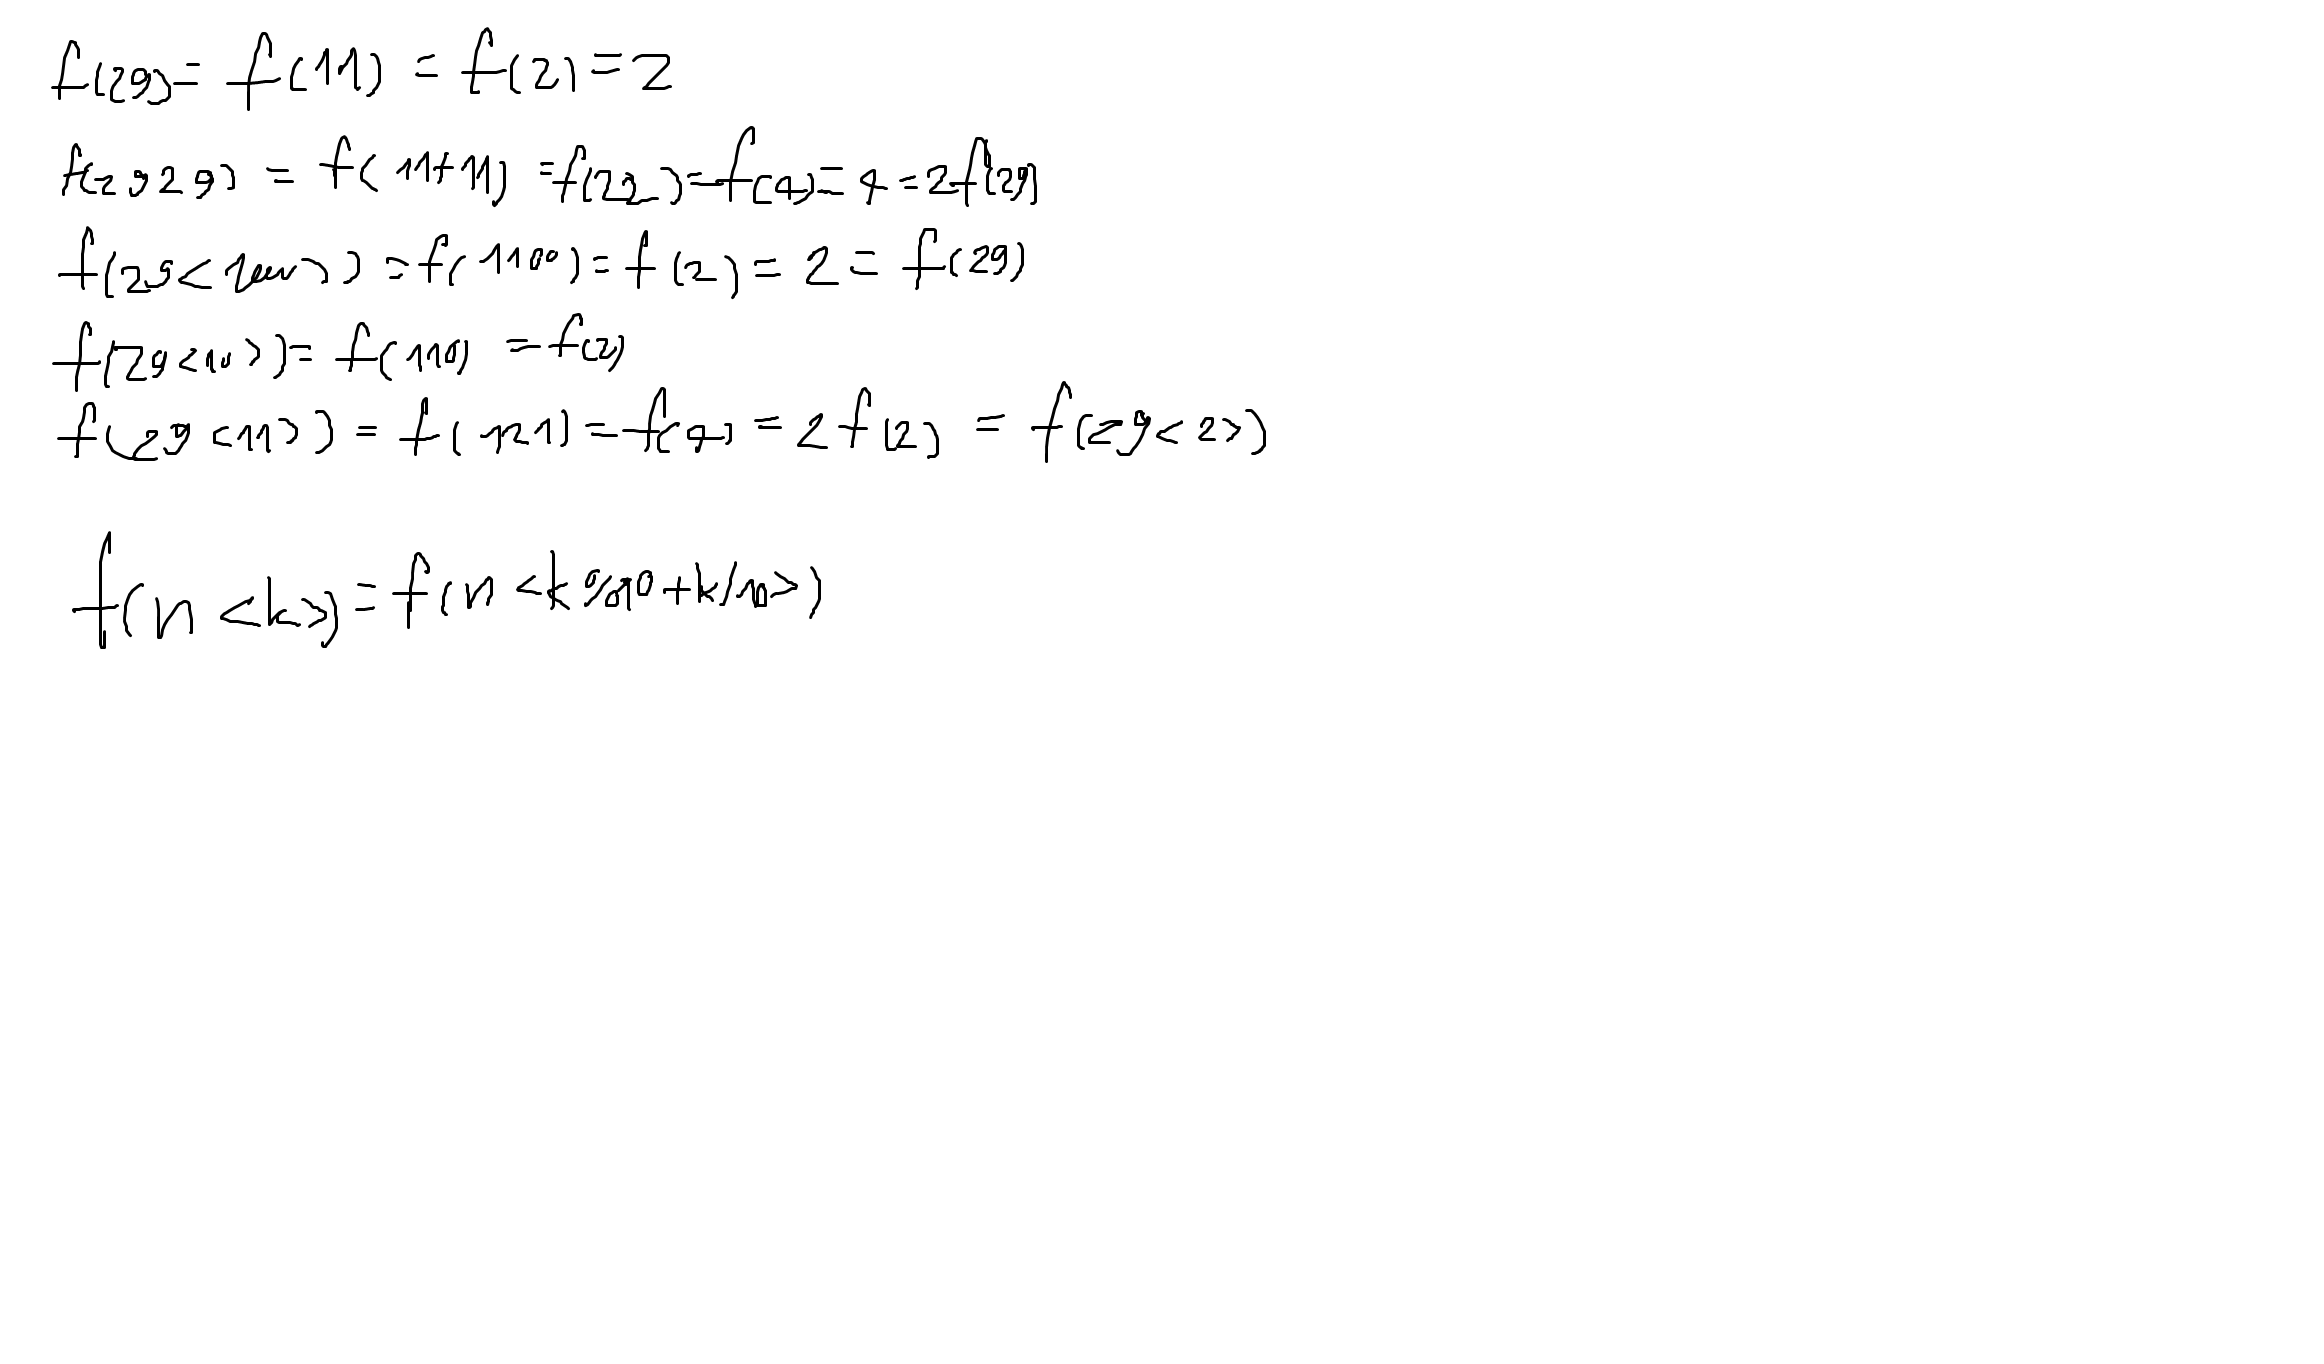 f(29) = f(11) = f(2) = 2
f(2929) = f(11+11) = f(22) = f(4) = 4 = 2f(29)
f(29<100>) = f(1100) = f(2) = 2 = f(29)
f(29<10>) = f(110) = f(2)
f(29<11>) = f(121) = f(4) = 2f(2) = f(29<2>)
f(n<k>) = f(n<k%10+k/10>)